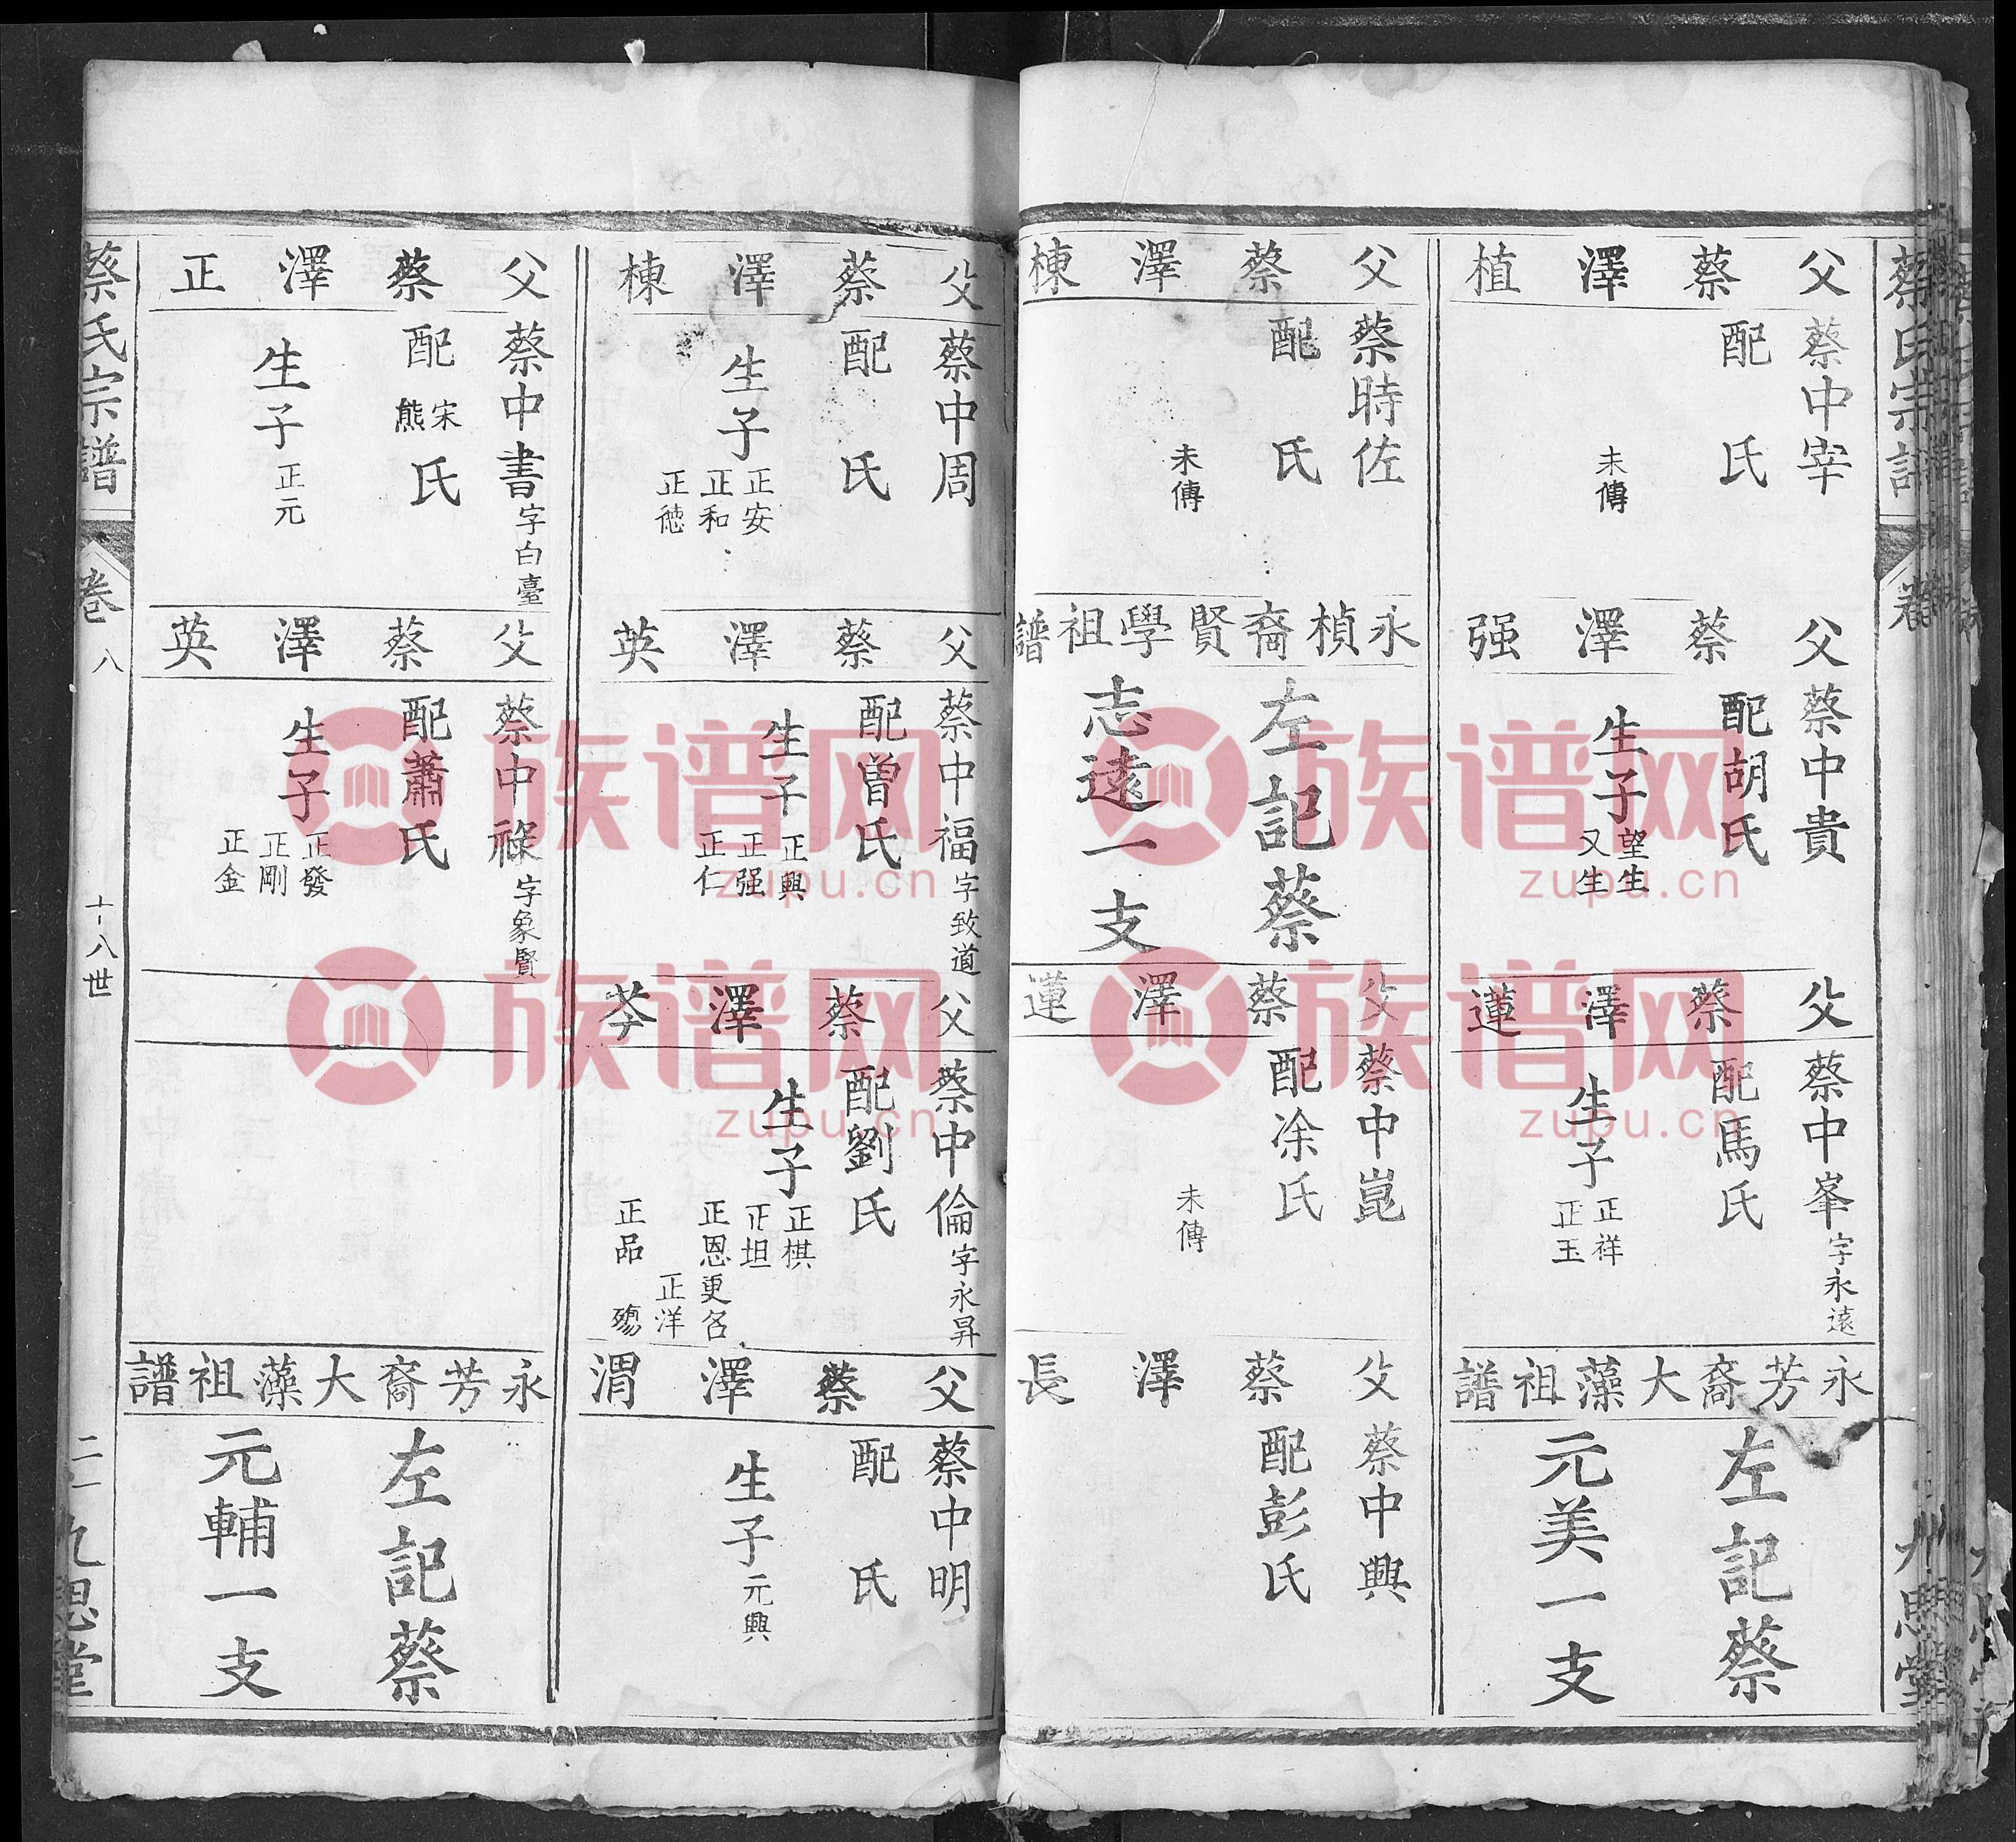 蔡氏宗譜
卷
九思堂
父蔡澤植
蔡中宰
配 氏
未傳
父蔡澤强
蔡中貴
配胡氏
生子
望生
又生
父蔡澤蓮
蔡中峯字永遠
配馬氏
生子
正祥
正玉
永芳裔大藻祖譜
左記蔡
元美一支
父蔡澤棟
蔡時佐
配 氏
未傳
永楨裔賢學祖譜
左記蔡
志遠一支
父蔡澤蓮
蔡中崑
配涂氏
未傳
父蔡澤長
蔡中興
配彭氏
父蔡澤棟
蔡中周
配 氏
生子
正安
正和
正德
父蔡澤英
蔡中福字致道
配曾氏
生子
正興
正强
正仁
父蔡澤芩
蔡中倫字永昇
配劉氏
生子
正棋
正坦
正恩更名
正洋
正品 殤
父蔡澤渭
蔡中明
配 氏
生子
元興
父蔡澤正
蔡中書字白臺
配宋熊氏
生子
正元
父蔡澤英
蔡中祿字象賢
配蕭氏
生子
正發
正剛
正金
永芳裔大藻祖譜
左記蔡
元輔一支
蔡氏宗譜
卷八
十八世
二一
九思堂
族谱网
zupu.cn
族谱网
zupu.cn
族谱网
zupu.cn
族谱网
zupu.cn